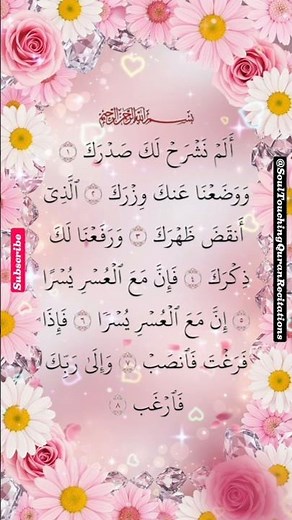 بسم الله الرحمن الرحيم
أَلَمۡ نَشۡرَحۡ لَكَ صَدۡرَكَ ١
وَوَضَعۡنَا عَنكَ وِزۡرَكَ ٢ ٱلَّذِيٓ
أَنقَضَ ظَهۡرَكَ ٣ وَرَفَعۡنَا لَكَ
ذِكۡرَكَ ٤ فَإِنَّ مَعَ ٱلۡعُسۡرِ يُسۡرًا
٥ إِنَّ مَعَ ٱلۡعُسۡرِ يُسۡرٗا ٦ فَإِذَا
فَرَغۡتَ فَٱنصَبۡ ٧ وَإِلَىٰ رَبِّكَ
فَٱرۡغَب ٨
@SoulTouchingQuranRecitations
Subscribe